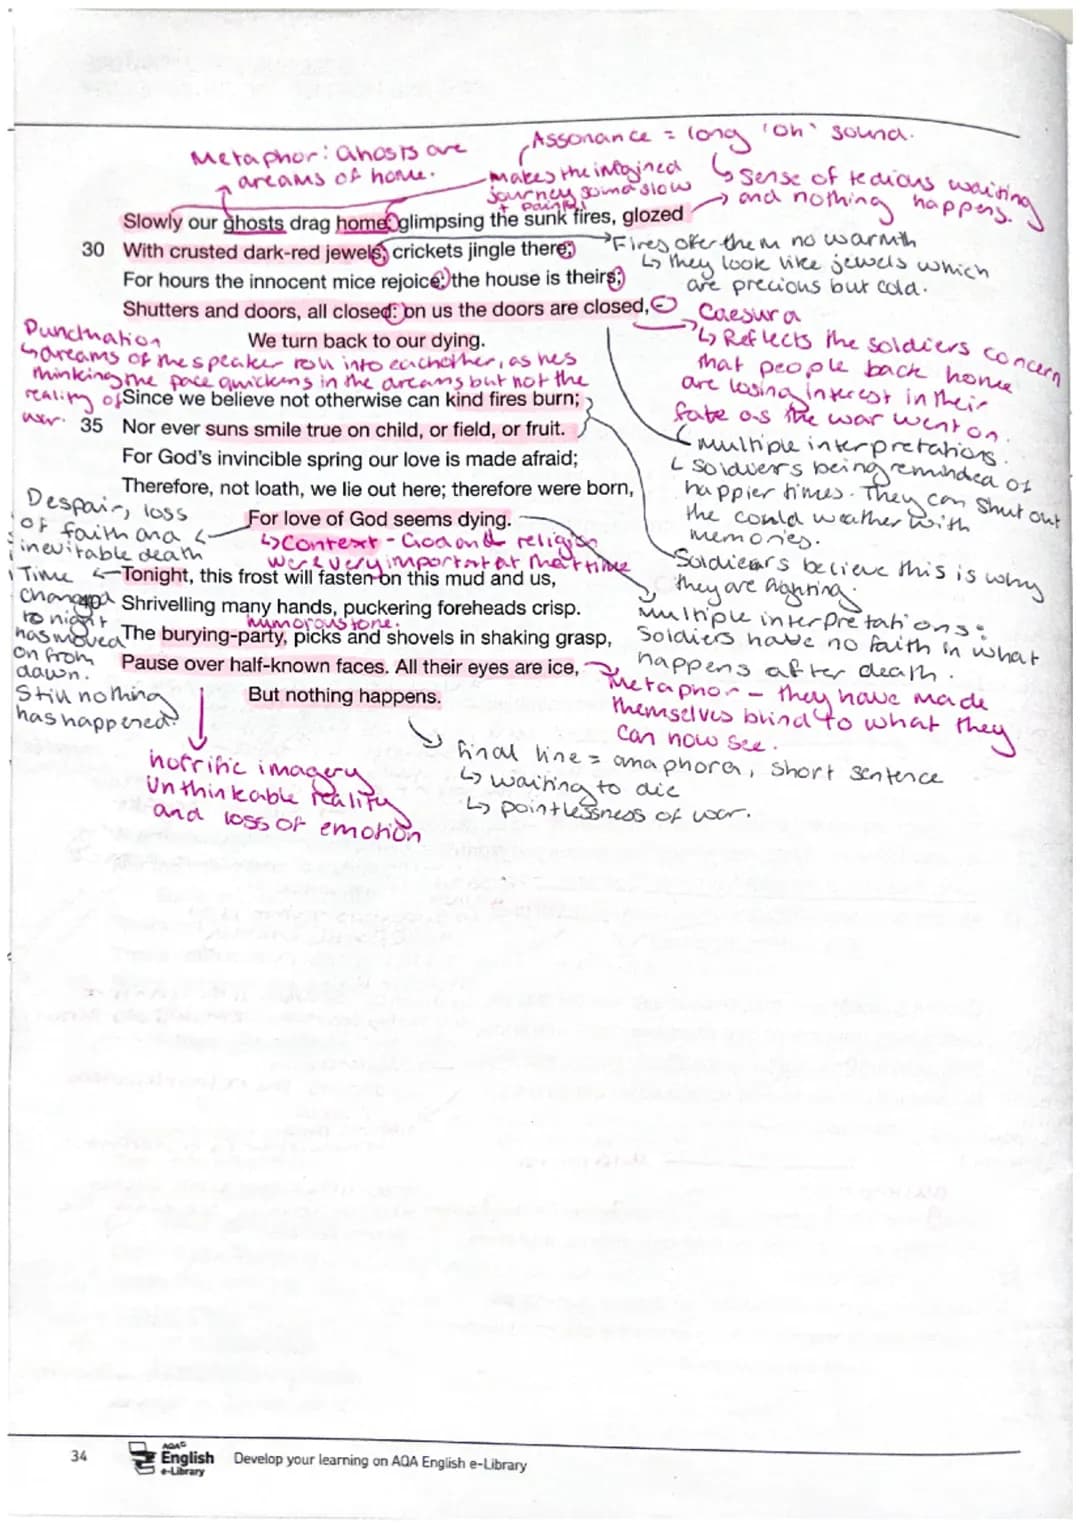 Metaphor: Ghosts are
dreams of home.
Assonance = long 'oh' sound.
Makes the imagined
journey slow
+ painful
↳ Sense of tedious waiting
and nothing happens.
Slowly our ghosts drag home: glimpsing the sunk fires, glozed
30 With crusted dark-red jewels; crickets jingle there;
For hours the innocent mice rejoice: the house is theirs;
Shutters and doors, all closed: on us the doors are closed, –
We turn back to our dying.
Fires offer them no warmth
↳ they look like jewels which
are precious but cold.
Caesura
↳ Reflects the soldiers concern
that people back home
are losing interest in their
fate as the war went on.
Punctuation
↳ dreams of the speaker roll into eachother, as hes
thinking the pace quickens in the dreams but not the
reality of
war.
Since we believe not otherwise can kind fires burn;
35 Nor ever suns smile true on child, or field, or fruit.
For God's invincible spring our love is made afraid;
Therefore, not loath, we lie out here; therefore were born,
For love of God seems dying.
multiple interpretations.
↳ Soldiers being reminded of
happier times. They can shut out
the could weather with
memories.
Soldiears believe this is why
they are fighting.
Despair, loss
of faith and
inevitable death
↳ Context - God and religion
were very important at that time
Multiple interpretations:
Soldiers have no faith in what
happens after death.
Time
changed
to night
has moved
on from
dawn.
Still nothing
has happened
Tonight, this frost will fasten on this mud and us,
40 Shrivelling many hands, puckering foreheads crisp.
humorous tone.
The burying-party, picks and shovels in shaking grasp,
Pause over half-known faces. All their eyes are ice,
But nothing happens.
Metaphor – they have made
themselves blind to what they
can now see.
final line = anaphora, short sentence
↳ waiting to die
↳ pointlessness of war.
horrific imagery
Unthinkable reality
and loss of emotion
34
AQA
English
e-Library
Develop your learning on AQA English e-Library